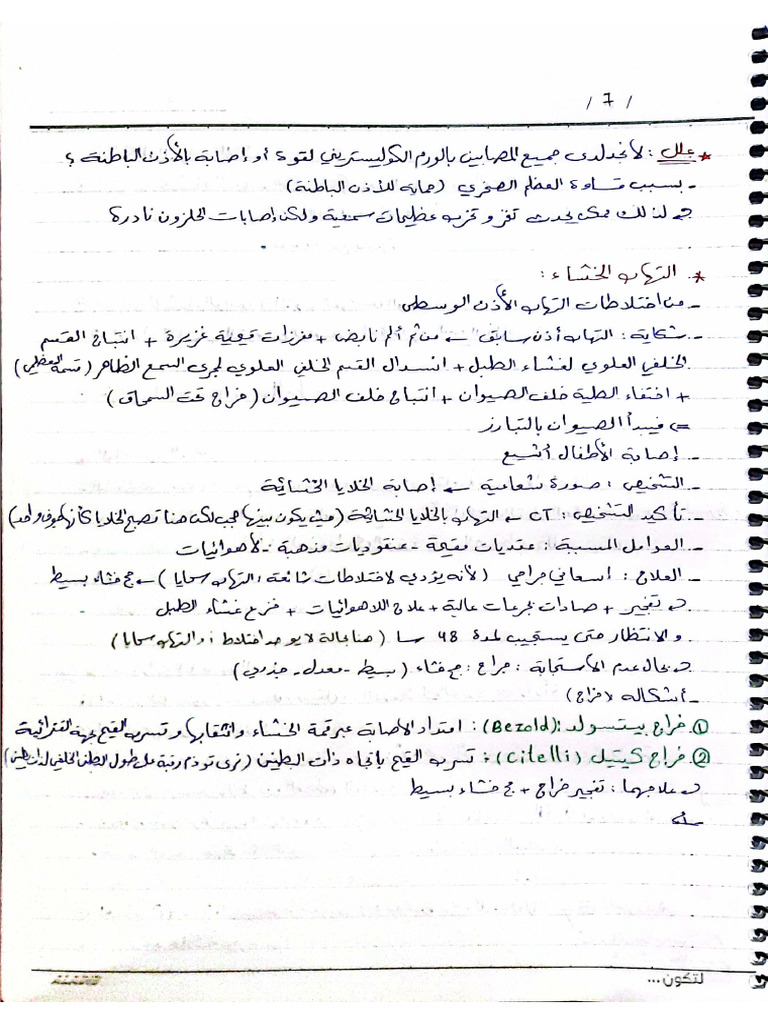 / 7 /
* علل: لا نجد لدى جميع المصابين بالورم الكوليستريني لقوة أو إصابة بالأذن الباطنة؟
- بسبب قساوة العظم الصخري (حماية للأذن الباطنة)
لذلك ممكن يحدث تخرب عظيمات سمعية ولكن إصابات الحلزون نادرة
* التهاب الخشاء:
- من اختلاطات التهاب الأذن الوسطى
- شكاية: التهاب أذن سابق ← من ثم ألم نابض + مفرزات قيحية غزيرة + انتباج القسم
الخلفي العلوي لغشاء الطبل + انسدال القسم الخلفي العلوي لمجرى السمع الظاهر (قسمه العظمي)
+ اختفاء الطية خلف الصيوان + انتباج خلف الصيوان (خراج تحت السمحاق)
=> فيبدأ الصيوان بالتبارز
- إصابة الأطفال أشيع
- التشخيص: صورة شعاعية ← إصابة الخلايا الخشائية
- تأكيد التشخيص: CT ← التهاب بالخلايا الخشائية (حيث يكون بينها حجب لكن هنا تصبح الخلايا كأنها جوف واحد)
- العوامل المسببة: عقديات مقيحة - عنقوديات مذهبة - لاهوائيات
- العلاج: إسعافي جراحي (لأنه يؤدي لاختلاطات شائعة: التهاب سحايا) ← حج خشاء بسيط
تفجير + صادات بجرعات عالية + علاج اللاهوائيات + خزع غشاء الطبل
والانتظار حتى يستجيب لمدة 48 سا (هنا بحالة لا يوجد اختلاط أو التهاب سحايا)
بحال عدم الاستجابة: جراح: حج خشاء (بسيط - معدل - جذري)
- أشكاله (خراج)
① خراج بيتسولد (Bezold): امتداد الإصابة عبر قمة الخشاء وانثقابها وتسرب القيح بجهة القترائية
② خراج كيتيلي (Citelli): تسرب القيح باتجاه ذات البطنين (نرى توذم رقبة على طول البطن الخلفي لذات البطنين)
علاجهما: تفجير خراج + حج خشاء بسيط
لتكون ...